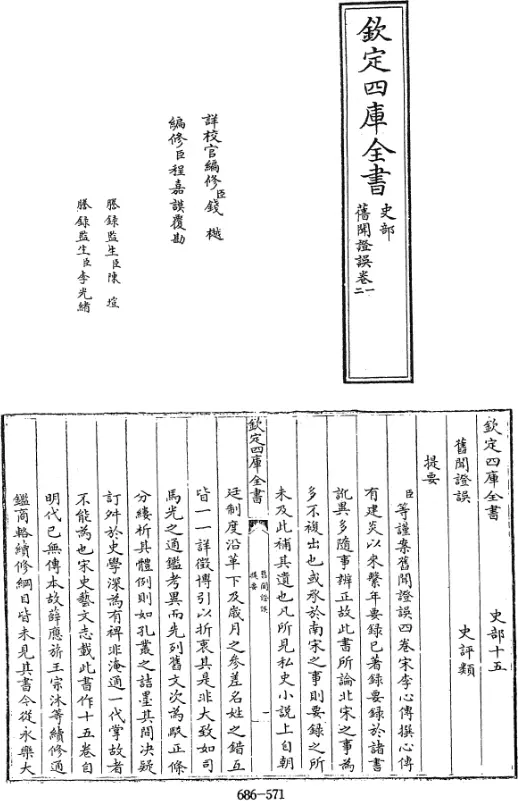 欽定四庫全書
史部
舊聞證誤卷一
二
詳校官編修臣錢樾
編修臣程嘉謨覆勘
謄錄監生臣陳塏
謄錄監生臣李光緒
欽定四庫全書
史部十五
舊聞證誤
史評類
提要
臣等謹案舊聞證誤四卷宋李心傳撰心傳
有建炎以來繫年要錄已著録要録於諸書
訛異多隨事辨正故此書所論北宋之事為
多不複出也或承於南宋之事則要錄之所
未及此補其遺也凡所見私史小説上自朝
欽定四庫全書
舊聞證誤
提要
一
廷制度沿革下及歲月之參差名姓之錯互
皆一一詳徵博引以折衷其是非大致如司
馬光之通鑑考異而先列舊文次為駁正條
分縷析其體例則如孔叢之詰墨其間决疑
訂舛於史學深為有裨非淹通一代掌故者
不能為也宋史藝文志載此書作十五卷自
明代已無傳本故薛應旂王宗沐等續修通
鑑商輅續修綱目皆未見其書今從永樂大
686-571